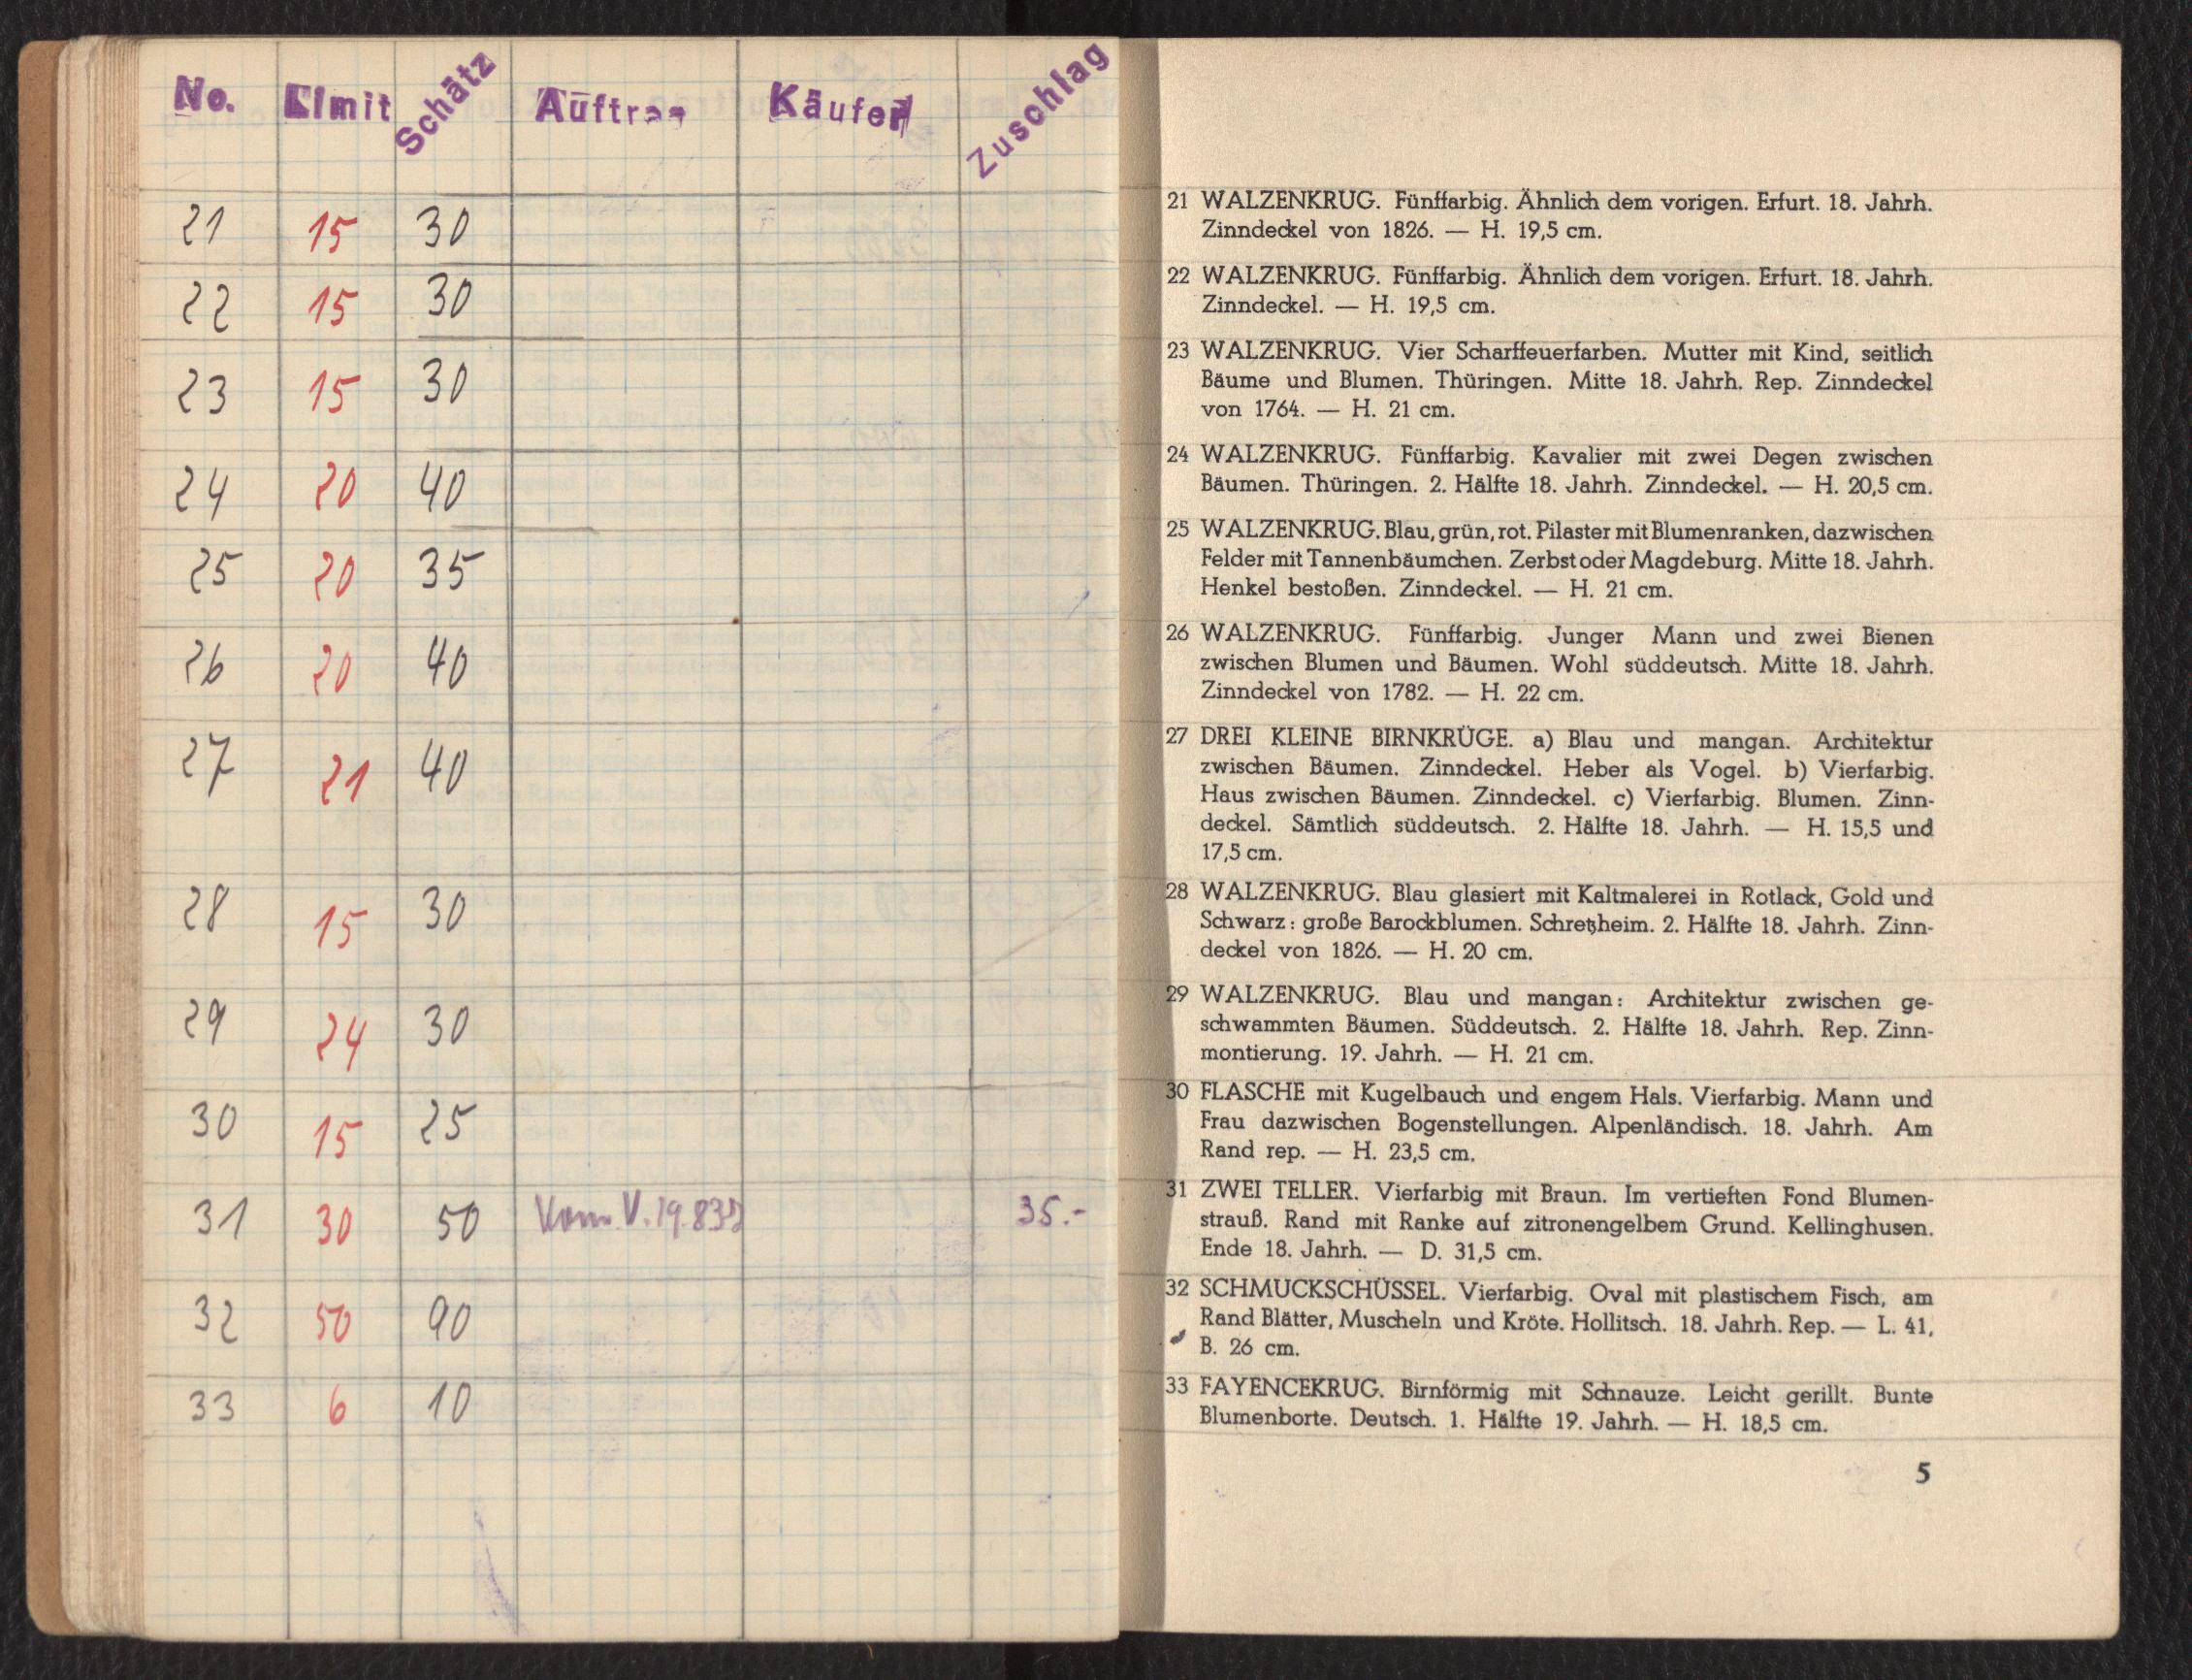 No. Limit Schätz Auftrag Käufer Zuschlag
21 15 30
22 15 30
23 15 30
24 20 40
25 20 35
26 20 40
27 21 40
28 15 30
29 24 30
30 15 25
31 30 50 V. 19.83 35.-
32 50 90
33 6 10
21 WALZENKRUG. Fünffarbig. Ähnlich dem vorigen. Erfurt. 18. Jahrh.
Zinndeckel von 1826. — H. 19,5 cm.
22 WALZENKRUG. Fünffarbig. Ähnlich dem vorigen. Erfurt. 18. Jahrh.
Zinndeckel. — H. 19,5 cm.
23 WALZENKRUG. Vier Scharffeuerfarben. Mutter mit Kind, seitlich
Bäume und Blumen. Thüringen. Mitte 18. Jahrh. Rep. Zinndeckel
von 1764. — H. 21 cm.
24 WALZENKRUG. Fünffarbig. Kavalier mit zwei Degen zwischen
Bäumen. Thüringen. 2. Hälfte 18. Jahrh. Zinndeckel. — H. 20,5 cm.
25 WALZENKRUG. Blau, grün, rot. Pilaster mit Blumenranken, dazwischen
Felder mit Tannenbäumchen. Zerbst oder Magdeburg. Mitte 18. Jahrh.
Henkel bestoßen. Zinndeckel. — H. 21 cm.
26 WALZENKRUG. Fünffarbig. Junger Mann und zwei Bienen
zwischen Blumen und Bäumen. Wohl süddeutsch. Mitte 18. Jahrh.
Zinndeckel von 1782. — H. 22 cm.
27 DREI KLEINE BIRNKRÜGE. a) Blau und mangan. Architektur
zwischen Bäumen. Zinndeckel. Heber als Vogel. b) Vierfarbig.
Haus zwischen Bäumen. Zinndeckel. c) Vierfarbig. Blumen. Zinn-
deckel. Sämtlich süddeutsch. 2. Hälfte 18. Jahrh. — H. 15,5 und
17,5 cm.
28 WALZENKRUG. Blau glasiert mit Kaltmalerei in Rotlack, Gold und
Schwarz: große Barockblumen. Schretzheim. 2. Hälfte 18. Jahrh. Zinn-
deckel von 1826. — H. 20 cm.
29 WALZENKRUG. Blau und mangan: Architektur zwischen ge-
schwammten Bäumen. Süddeutsch. 2. Hälfte 18. Jahrh. Rep. Zinn-
montierung. 19. Jahrh. — H. 21 cm.
30 FLASCHE mit Kugelbauch und engem Hals. Vierfarbig. Mann und
Frau dazwischen Bogenstellungen. Alpenländisch. 18. Jahrh. Am
Rand rep. — H. 23,5 cm.
31 ZWEI TELLER. Vierfarbig mit Braun. Im vertieften Fond Blumen-
strauß. Rand mit Ranke auf zitronengelbem Grund. Kellinghusen.
Ende 18. Jahrh. — D. 31,5 cm.
32 SCHMUCKSCHÜSSEL. Vierfarbig. Oval mit plastischem Fisch, am
Rand Blätter, Muscheln und Kröte. Hollitsch. 18. Jahrh. Rep. — L. 41,
B. 26 cm.
33 FAYENCEKRUG. Birnförmig mit Schnauze. Leicht gerillt. Bunte
Blumenborte. Deutsch. 1. Hälfte 19. Jahrh. — H. 18,5 cm.
5